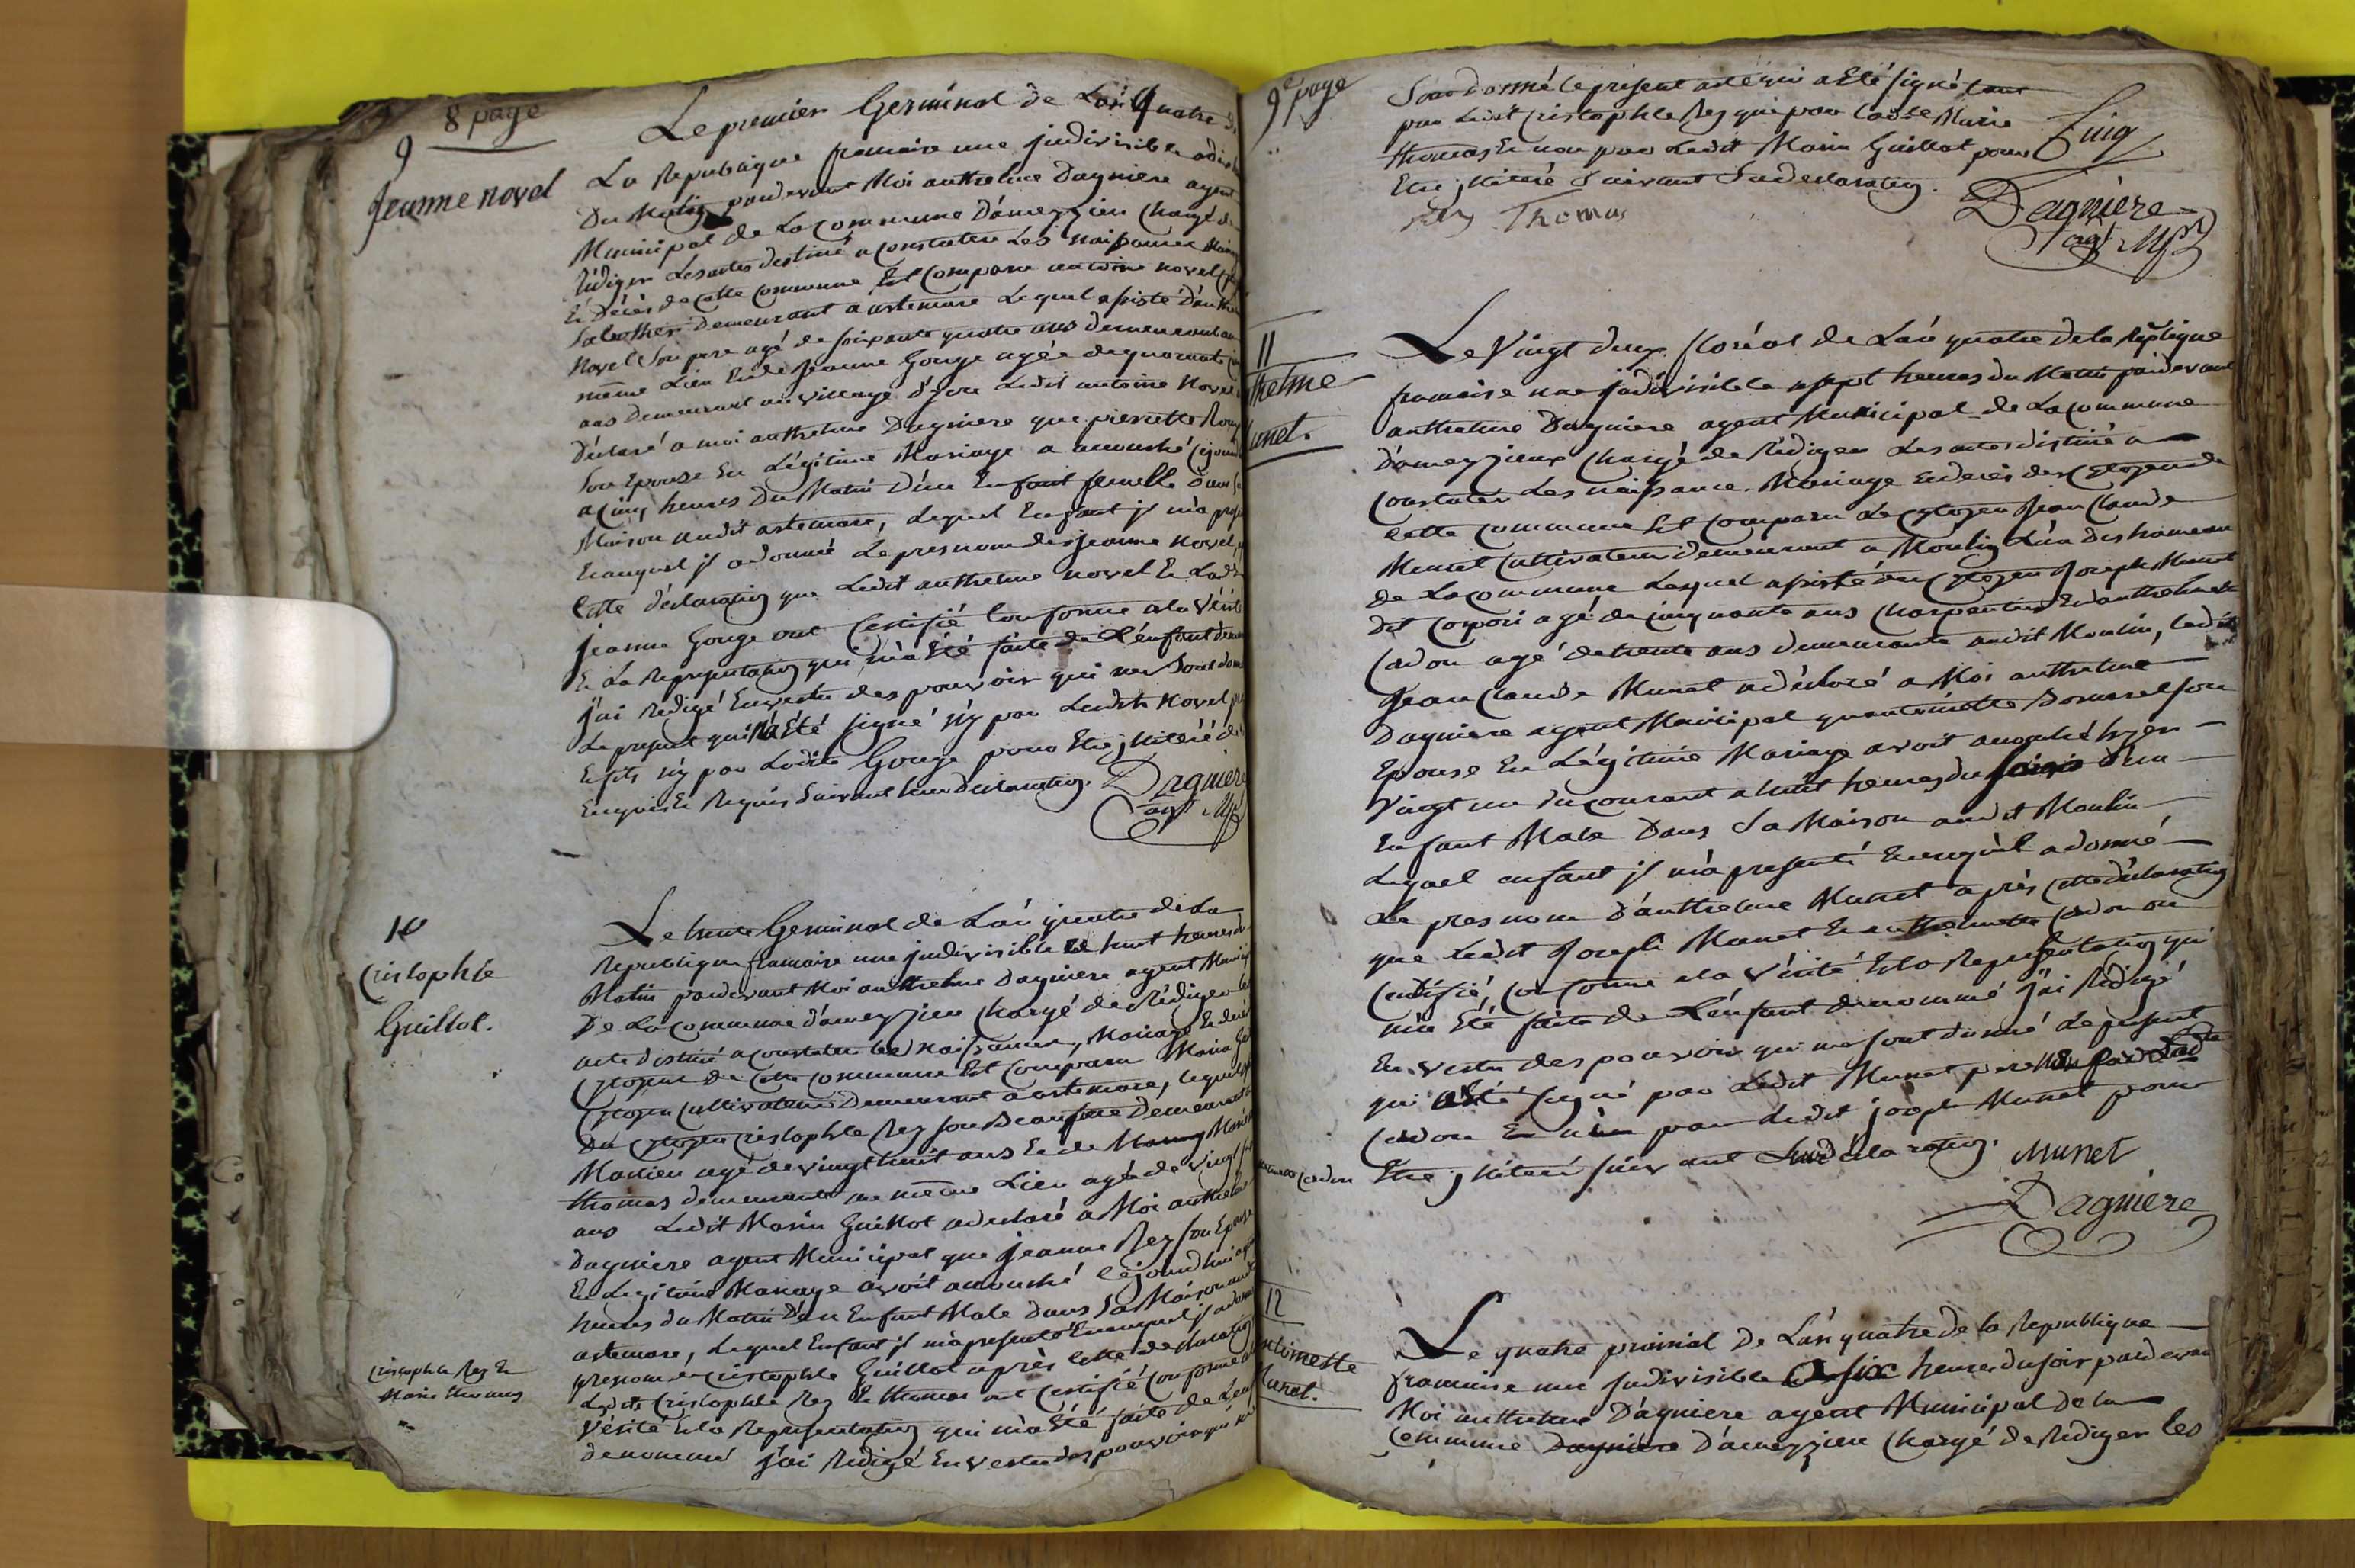 8 page
9
Jeanne novel
Le premier Germinal de Lan quatre
La Republique francaise une jndivisible a dix
Du Matin pardevant Moi anthelme Dagniere agent
Municipal de La Commune Dameyzieu Chargé de
Rédiger Les actes destiné a constater Les naissances Mariage
Et Décès de cette commune Est Comparu antoine novel
demeurant a artemare Lequel assisté
Novel Son pere agé de soixante quatre ans demeurant au
même Lieu Et de Jeanne Gouge agée de quarante
ans demeurant au village Ledit antoine Novel
Déclaré a moi anthelme Dagniere que pierrette
Son Epouse En Légitime Mariage a accouché
a Cinq heures Du Matin D'un Enfant femelle dans sa
Maison audit artemare, Lequel Enfant jl m'a
Et auquel jl a donné Le presnom de Jeanne Novel,
Cette déclaration que Ledit anthelme novel Et Ladite
jeanne Gouge ont Certifié Conforme a la Vérité
Et La Representation qui m'a Eté faite de L'enfant
j'ai Redigé En vertu des pouvoir qui me Sont
Le present qui n'a Eté signé n'y par Ledits Novel
Et fils n'y par Ladite Gouge pour Etre jlliteré de
Enquis Et Requis Suivant leur Declaration. Dagniere
agt Mpl
10
Cristophle
Guillot.
Le trente Germinal de L'an quatre de La
Republique francaise une jndivisible huit heures du
Matin pardevant Moi anthelme Dagniere agent
De La Commune d'ameyzieu Chargé de Rédiger les
acte destiné a Constater les Naissances, Mariage Et décès
Citoyens De Cette Commune Est Comparu Marin
Citoyen Cultivateur Demeurant a artemare, lequel
Du Citoyen Cristophle Rey son Beaufrere Demeurant
agé de vingt huit ans Et de Marie
thomas demeurante au même Lieu agée de vingt
ans Ledit Marin Guillot a declaré a Moi anthelme
Dagniere agent Municipal que jeanne Rey son Epouse
En Legitime Mariage avoit accouché Cejourdhui
heures du Matin D'un Enfant Male Dans Sa Maison audit
artemare, Lequel Enfant jl m'a presenté Et auquel jl a donné
presnom de Cristophle Guillot après Cette declaration
Cristophle Rey Et thomas ont Certifié Conforme a
Vérité Et la Representation qui m'a Eté faite de L'enf
denommé j'ai Redigé En vertu des pouvoir qui me
Cristophle Rey Et
Marie thomas
9e page
Sont donné le present acte qui a Eté signé
par Ledit Cristophle Rey que par Ladite Marie
thomas Et non par Ledit Marin Guillot pour
Etre jlliteré Suivant Sa declaration.
Rey Thomas
Dagniere
agt Mpl
11
thelme
unet.
Le Vingt deux floréal de L'an quatre de la Republique
francaise une jndivisible a sept heures du Matin pardevant
anthelme Dagniere agent Municipal de La Commune
d'ameyzieux Chargé de Rédiger Les actes distiné a
Constater Les naissance. Mariage Et décès des Citoyen de
Cette Commune Est Comparu Le Citoyen Jean Claude
Munet Cultivateur demeurant a Moulin L'un des hameau
de La Commune Lequel assisté du Citoyen Joseph Munet
dit agé de Cinquante ans Charpentier Et d'anthelmette
Cadon agé de trente ans demeurante audit Moulin, Ledit
Jean Claude Munet a déclaré a Moi anthelme
Dagniere agent Municipal son
Epouse En Légitime Mariage avoit accouché hyer
Vingt un du courant a huit heures du d'un
Enfant Male Dans Sa Maison audit Moulin
Lequel enfant jl m'a presenté Et auquel a donné
Le presnom D'anthelme Munet après Cette déclaration
que Ledit Joseph Munet Et anthelmette Cadon ont
Certifié, Conforme a la Vérité Et la Representation qui
m'a Eté faite de L'enfant denommé j'ai Rédigé
En vertu des pouvoir qui me sont donné Le present
qui a Eté signé par Ledit Munet pere
Cadon Et par Ledit joseph Munet pour
Etre jlliteré suivant declaration. Munet
Cadon
Dagniere
12
ntomette
unet.
Le quatre prairial de L'an quatre de la Republique
francaise une jndivisible a six heures du soir pardevant
Moi anthelme Dagniere agent Municipal de la
Commune Dagniere D'ameyzieu Chargé de Rédiger les